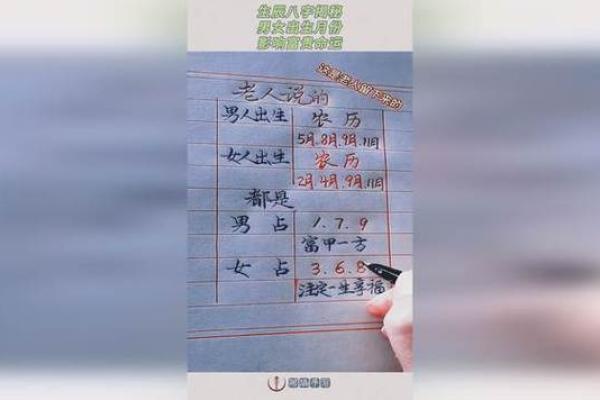 生辰八字揭秘
男女出生月份
影响富贵命运
这是老人留下来的
老人说的
男人出生 农历
5月.8月.9月.11日
女人出生 农历
2月.4月.9月.11日
都是
男 占 1.7.9
富甲一方
女 占 3.6.8
注定一生享福